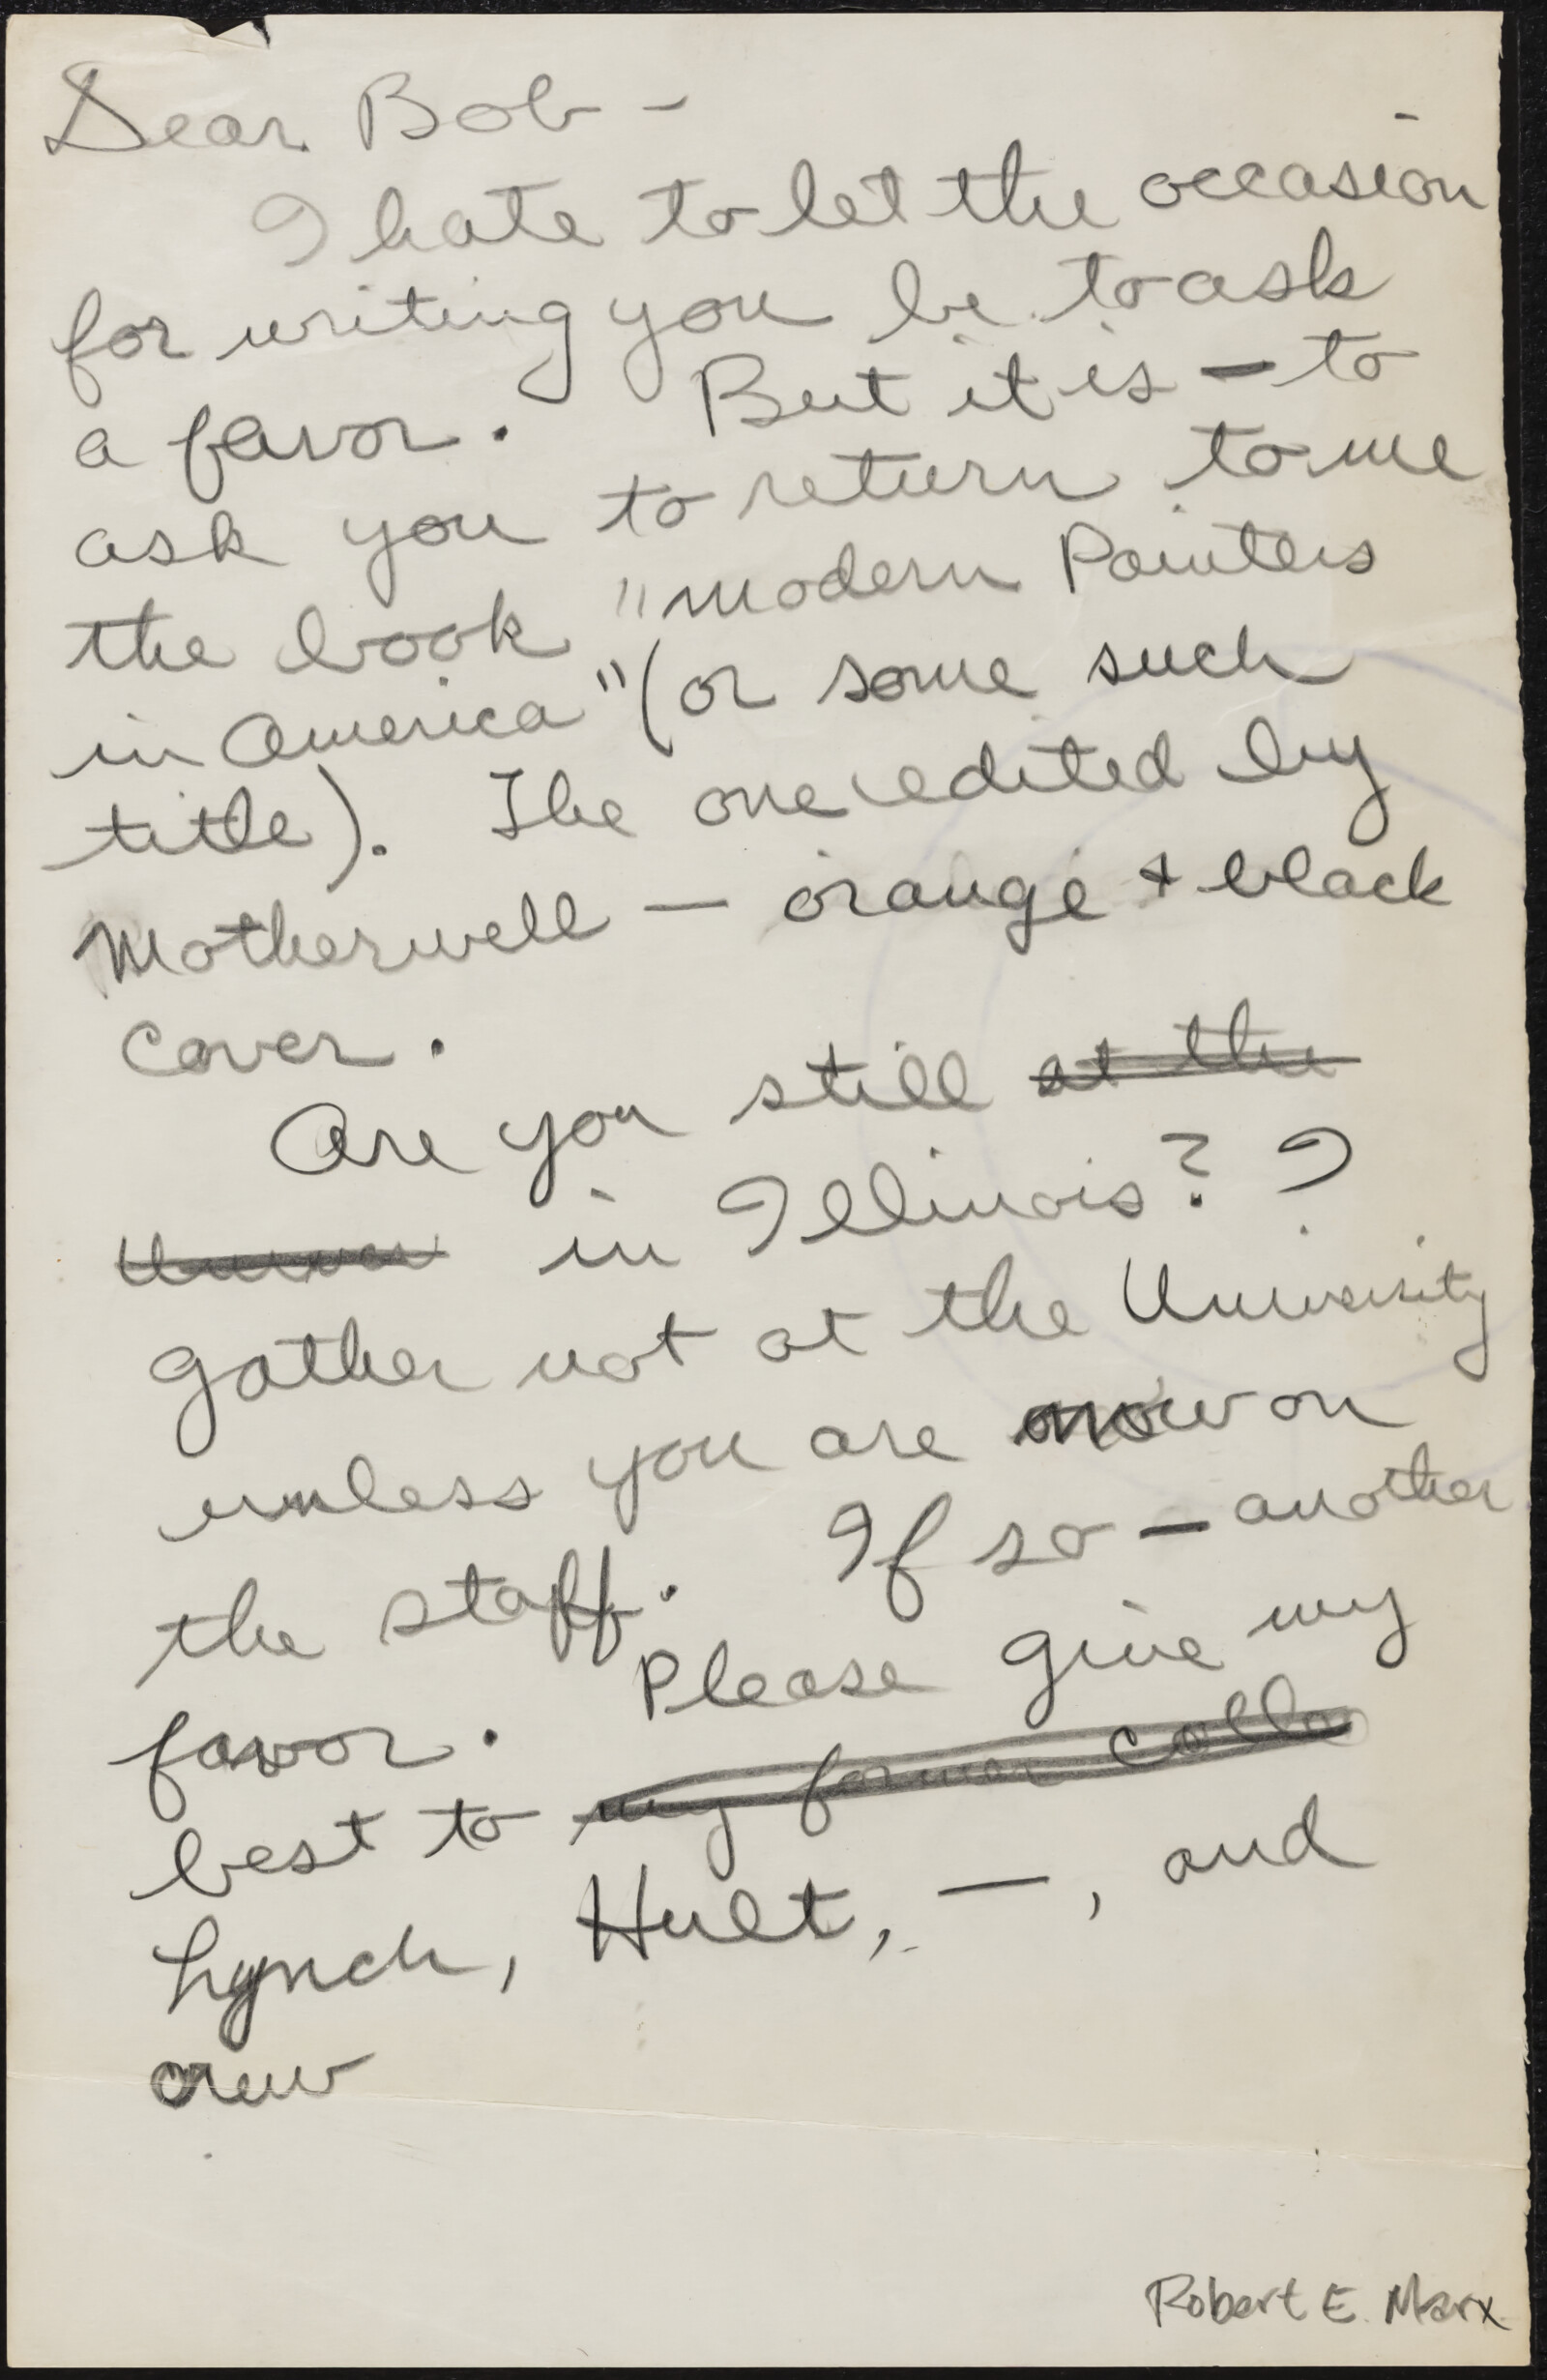 Dear Bob -
I hate to let the occasion
for writing you be to ask
a favor. But it is — to
ask you to return to me
the book "Modern Painters
in America" (or some such
title). The one edited by
Motherwell — orange + black
cover.
Are you still at the
Univer in Illinois? I
gather not at the University
unless you are now on
the staff. If so — another
favor. Please give my
best to my former collea
Lynch, Hult, —, and
crew
Robert E. Marx